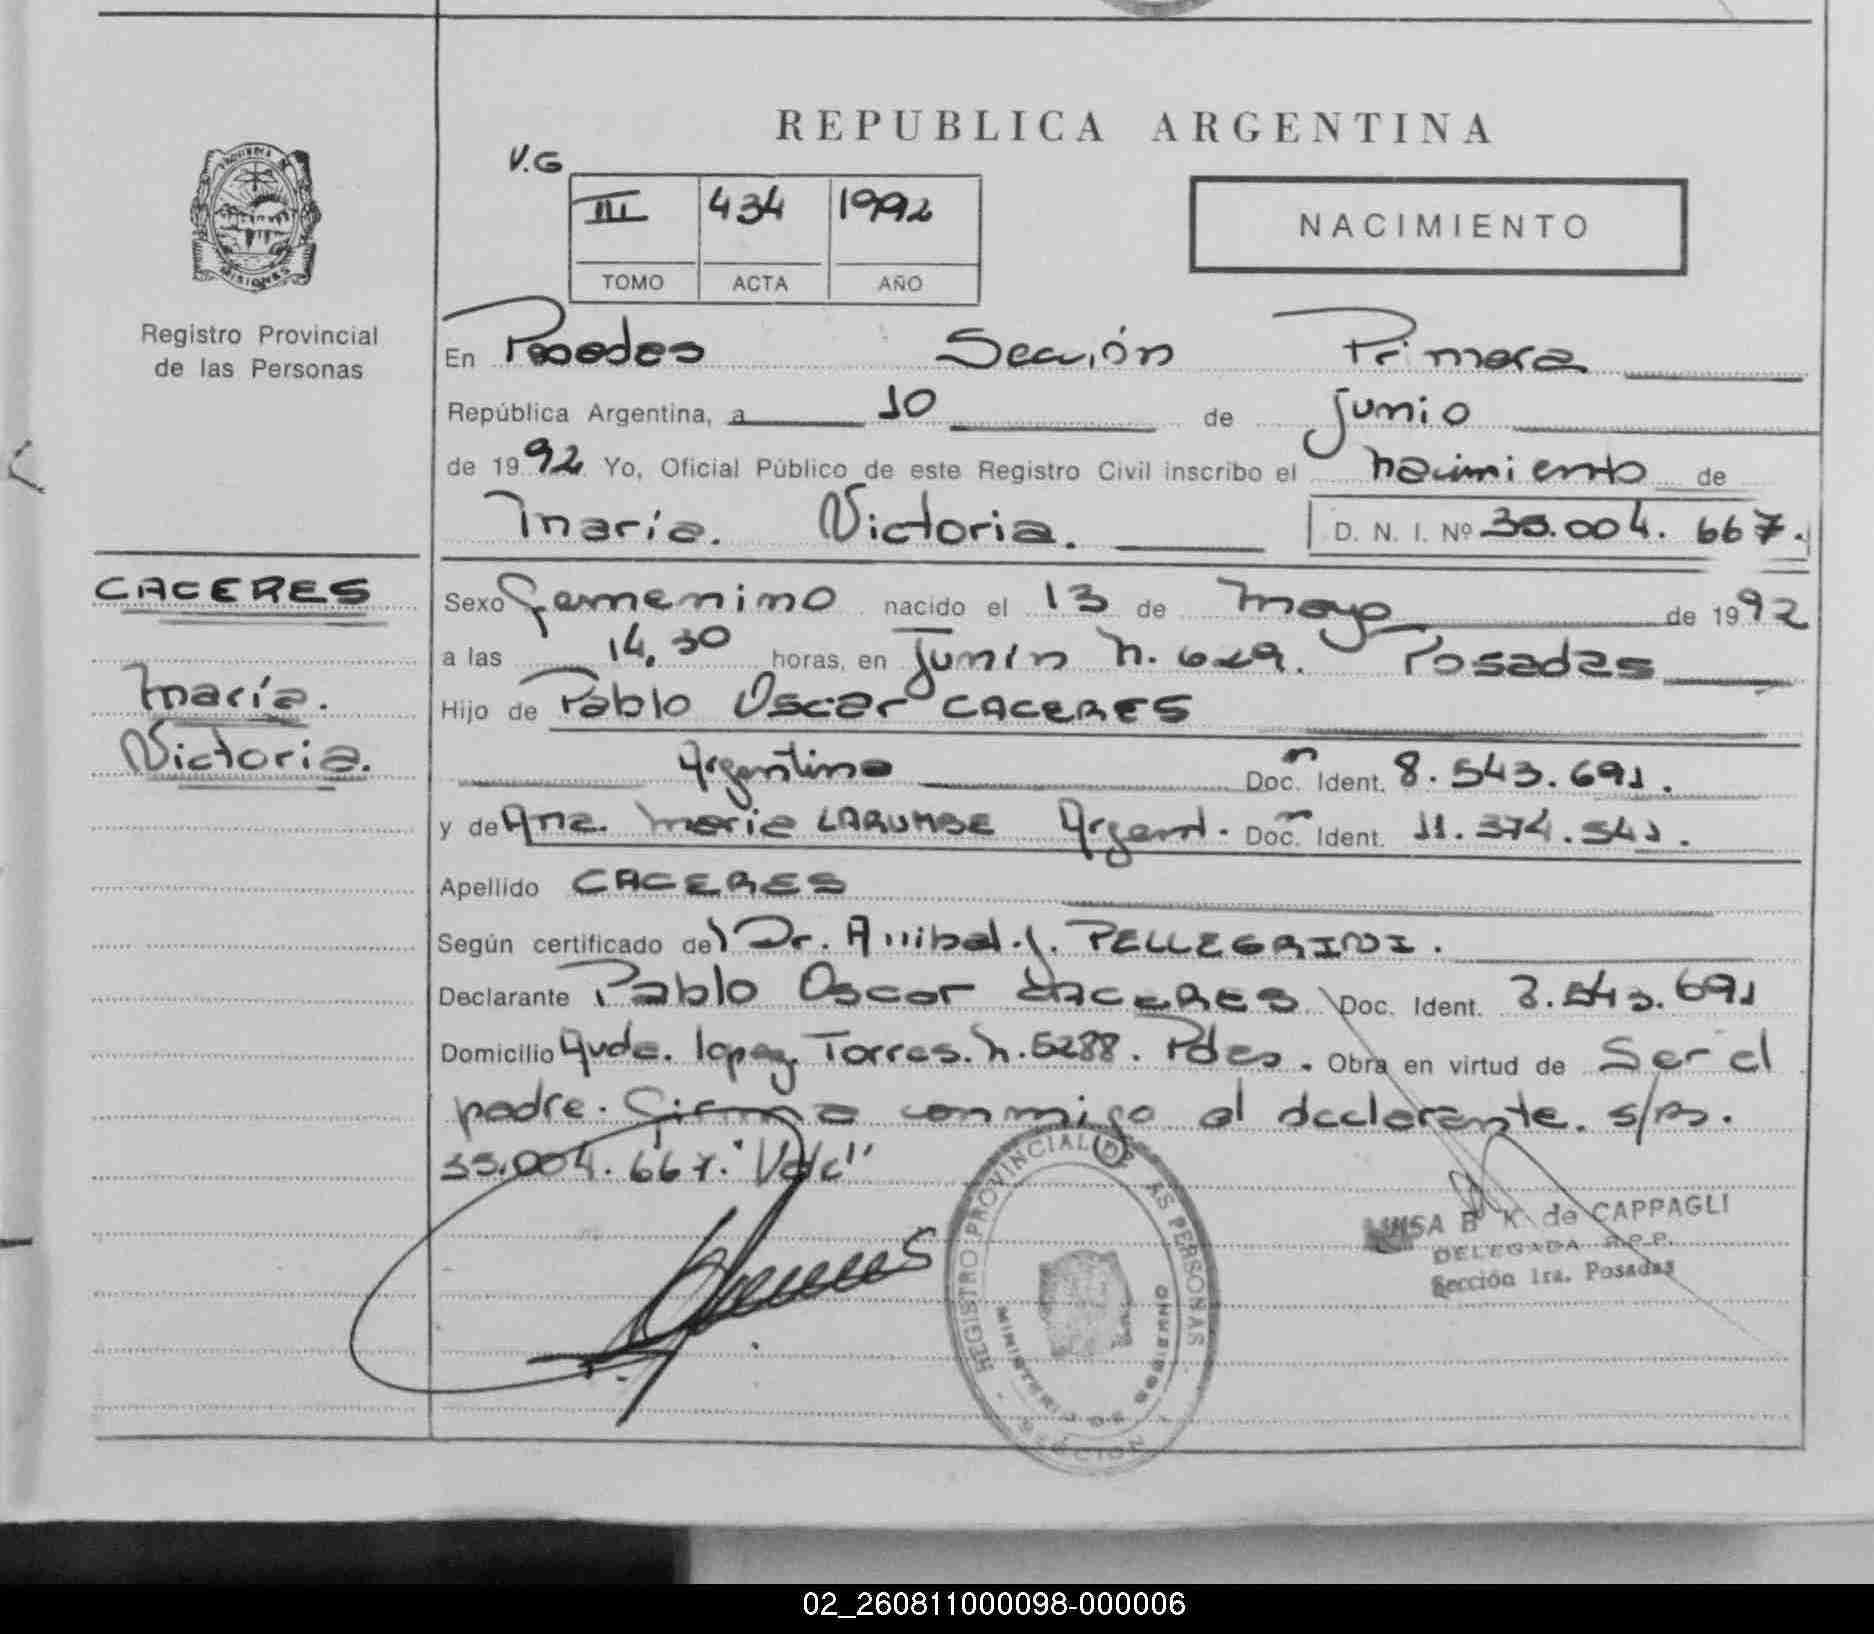 REPUBLICA ARGENTINA
V.G
III 434 1992
TOMO ACTA AÑO
NACIMIENTO
PROVINCIA DE MISIONES
Registro Provincial
de las Personas
En Posadas Sección Primera
República Argentina, a 10 de Junio
de 1992 Yo, Oficial Público de este Registro Civil inscribo el nacimiento de
María. Victoria. D. N. I. Nº 33.004.667.
CACERES
María.
Victoria.
Sexo Femenino nacido el 13 de Mayo de 1992
a las 14,30 horas, en Junín N. 629. Posadas
Hijo de Pablo Oscar CACERES
Argentino Doc. Ident. 8.543.691.
y de Ana. Maria LARUMBE Argent. Doc. Ident. 11.374.541.
Apellido CACERES
Según certificado del Dr. Anibal. J. PELLEGRINI.
Declarante Pablo Oscar CACERES Doc. Ident. 8.543.691
Domicilio Avda. lopez. Torres. N. 5288. Pdas. Obra en virtud de Ser el
padre. Firma conmigo el declarante. s/R.
33.004.667. "Vale"
REGISTRO PROVINCIAL DE LAS PERSONAS
MINISTERIO DE GOBIERNO
SECCION 1
B K de CAPPAGLI
DELEGADA R.P.P.
Sección 1ra. Posadas
02_260811000098-000006